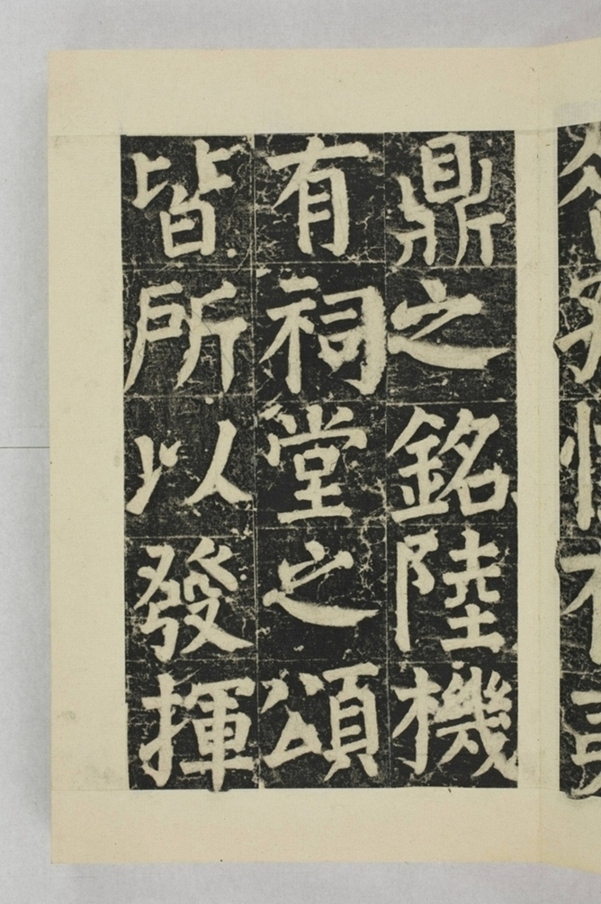 鼎之銘陸機
有祠堂之頌
皆所以發揮